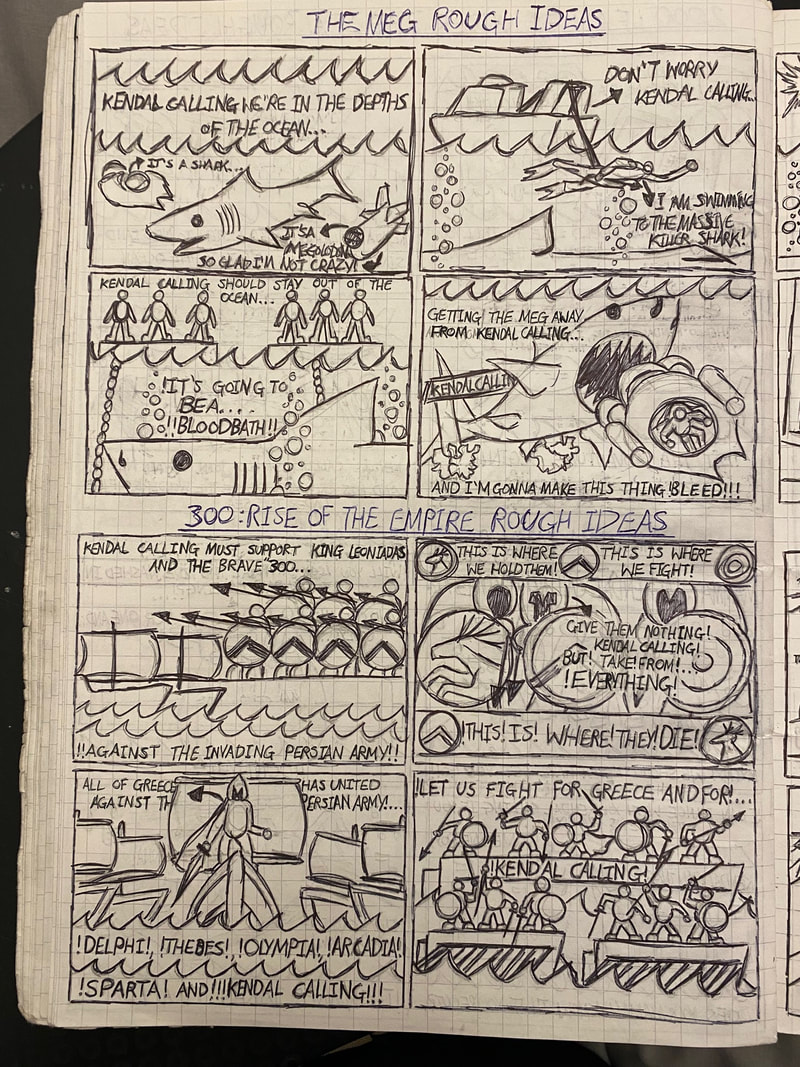 THE MEG ROUGH IDEAS
KENDAL CALLING WE'RE IN THE DEPTHS
OF THE OCEAN...
IT'S A SHARK...
IT'S A
MEGOLODON
SO GLAD I'M NOT CRAZY!
DON'T WORRY
KENDAL CALLING...
I AM SWIMMING
TO THE MASSIVE
KILLER SHARK!
KENDAL CALLING SHOULD STAY OUT OF THE
OCEAN...
!IT'S GOING TO
BE A....
!!BLOODBATH!!
GETTING THE MEG AWAY
FROM KENDAL CALLING...
KENDAL CALLIN
AND I'M GONNA MAKE THIS THING !BLEED!!!
300: RISE OF THE EMPIRE ROUGH IDEAS
KENDAL CALLING MUST SUPPORT KING LEONIADAS
AND THE BRAVE 300...
!!AGAINST THE INVADING PERSIAN ARMY!!
THIS IS WHERE
WE HOLD THEM!
THIS IS WHERE
WE FIGHT!
GIVE THEM NOTHING!
KENDAL CALLING!
BUT! TAKE! FROM!...
!EVERYTHING!
!THIS! IS! WHERE! THEY! DIE!
ALL OF GREECE HAS UNITED
AGAINST TH PERSIAN ARMY!...
!DELPHI!, !THEBES!, !OLYMPIA!, !ARCADIA!
!SPARTA! AND!!!KENDAL CALLING!!!
!LET US FIGHT FOR GREECE AND FOR!....
!KENDAL CALLING!